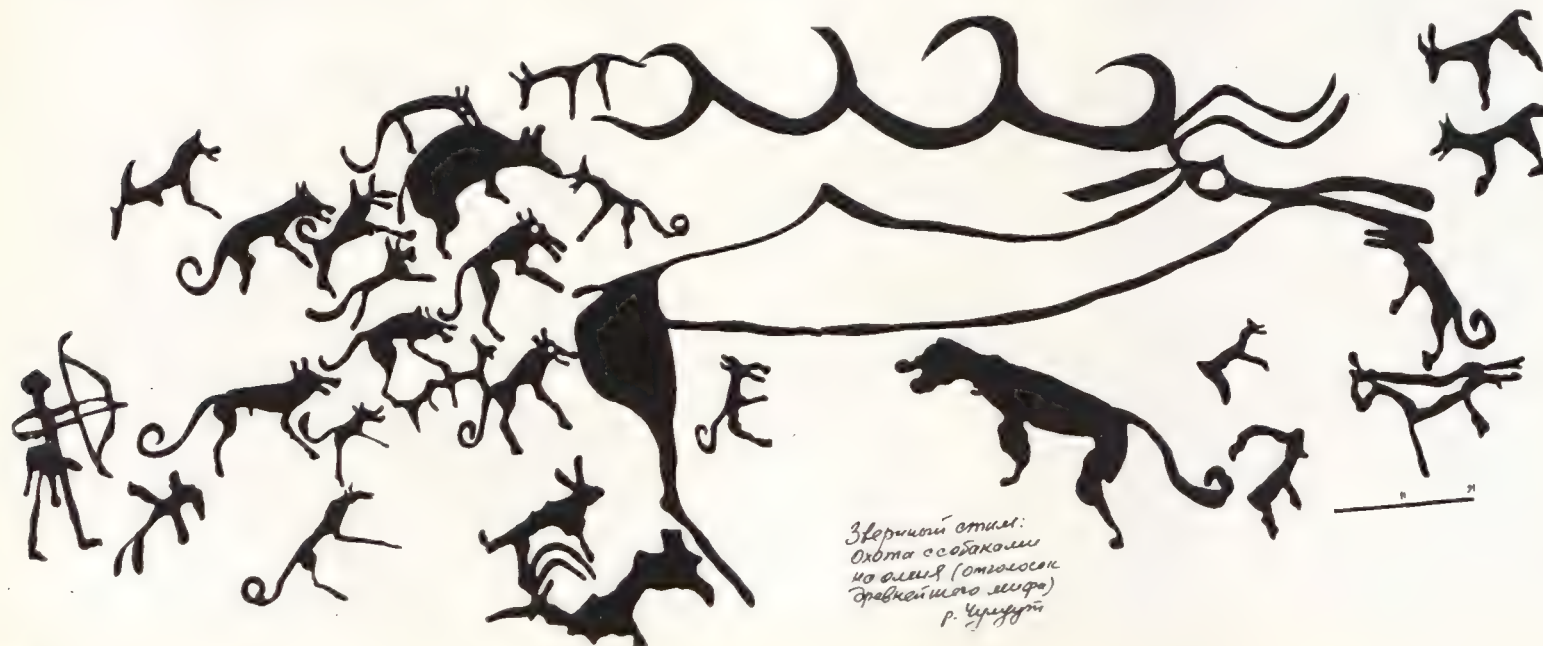 Звериный стиль:
Охота с собаками
на оленя (отголосок
древнейшего мифа)
р.